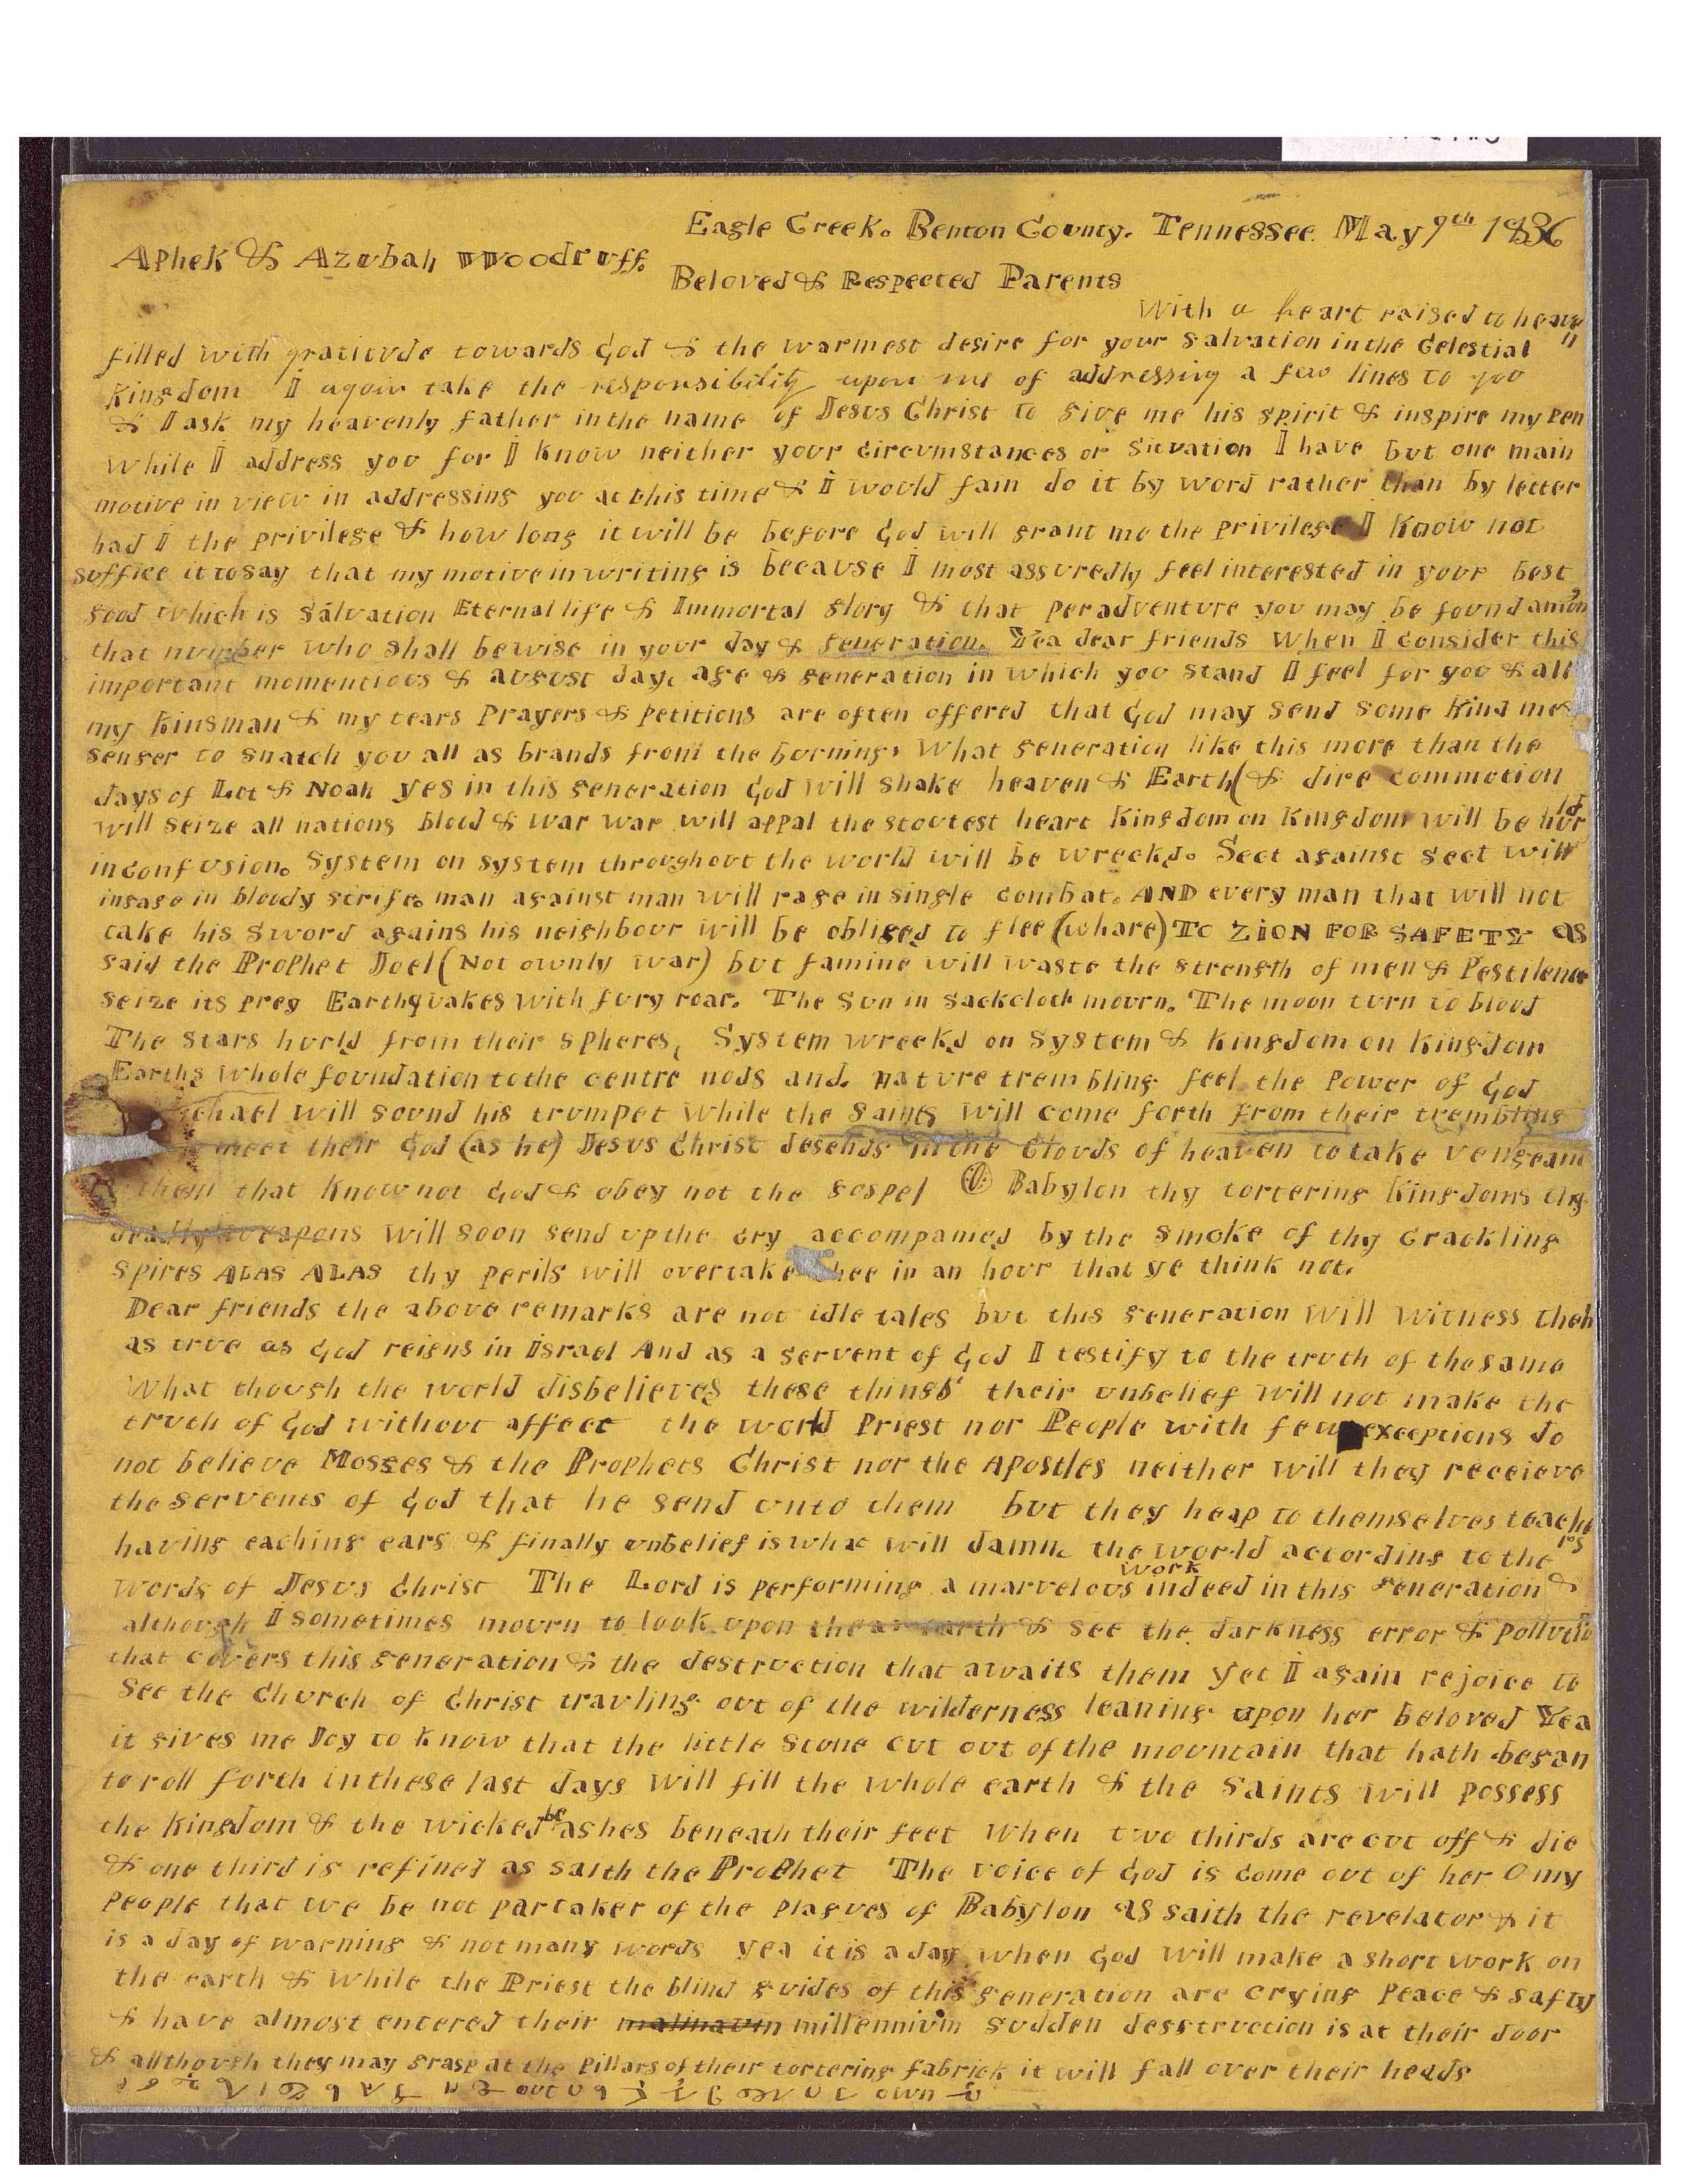 Eagle Creek. Benton County. Tennessee. May 9th 1836
Aphek & Azubah Woodruff.
Beloved & Respected Parents
With a heart raised to heave
n
filled with gratitude towards God & the warmest desire for your salvation in the Celestial
Kingdom I again take the responsibility upon me of addressing a few lines to you
& I ask my heavenly father in the name of Jesus Christ to give me his spirit & inspire my pen
while I address you for I know neither your circumstances or situation I have but one main
motive in view in addressing you at this time & I would fain do it by word rather than by letter
had I the privilege & how long it will be before God will grant me the privilege I know not
suffice it to say that my motive in writing is because I most assuredly feel interested in your best
good which is salvation Eternal life & Immortal glory & that peradventure you may be found amon
g
that number who shall be wise in your day & generation. Yea dear friends when I consider this
important momentious & august day, age & generation in which you stand I feel for you & all
my Kinsman & my tears Prayers & petitions are often offered that God may send some kind mes
senger to snatch you all as brands from the burning, What generation like this more than the
days of Lot & Noah yes in this generation God will shake heaven & Earth (& dire commotion
will seize all nations blood & war war will appal the stoutest heart Kingdom on Kingdom will be hur
ld
in confusion. System on system throughout the world will be wreckd. Sect against sect will
ingage in bloody strife. man against man will rage in single combat. AND every man that will not
take his sword agains his neighbour will be obliged to flee (whare) TO ZION FOR SAFETY as
said the Prophet Joel (Not ownly war) but famine will waste the strength of men & Pestilence
seize its prey Earthquakes with fury roar. The Sun in sackcloth mourn. The moon turn to blood
The Stars hurld from their spheres, System wreckd on System & kingdom on kingdom
Earths whole foundation to the centre nods and. nature trembling feel the Power of God
chael will sound his trumpet while the saints will come forth from their trembling
meet their God (as he) Jesus Christ desends in the Clouds of heaven to take vengeanc
them that know not God & obey not the gospel O Babylon thy tortering Kingdoms thy
deadly weapons will soon send up the cry accompanied by the smoke of thy Crackling
spires ALAS ALAS thy perils will overtake thee in an hour that ye think not.
Dear friends the above remarks are not idle tales but this generation will witness them
as true as God reigns in Israel And as a servent of God I testify to the truth of the same
What though the world disbelieves these things their unbelief will not make the
truth of God without affect the world Priest nor People with few exceptions do
not believe Mosses & the Prophets Christ nor the Apostles neither will they receieve
the servents of God that he send unto them but they heap to themselves teache
rs
having eaching ears & finally unbelief is what will damn the world according to the
work
words of Jesus Christ The Lord is performing a marvelous indeed in this generation &
although I sometimes mourn to look upon the earth & see the darkness error & pollutio
that covers this generation & the destruction that awaits them yet I again rejoice to
see the Church of Christ travling out of the wilderness leaning upon her beloved Yea
it gives me Joy to know that the little stone cut out of the mountain that hath began
to roll forth in these last days will fill the whole earth & the Saints will possess
be
the kingdom & the wicked ashes beneath their feet When two thirds are cut off & die
& one third is refined as saith the Prophet The voice of God is come out of her O my
people that we be not partaker of the plagues of Babylon as saith the revelator & it
is a day of warning & not many words yea it is a day when God will make a short work on
the earth & while the Priest the blind guides of this generation are crying Peace & safty
& have almost entered their millennium sudden desstruction is at their door
& allthough they may grasp at the Pillars of their tortering fabrick it will fall over their heads